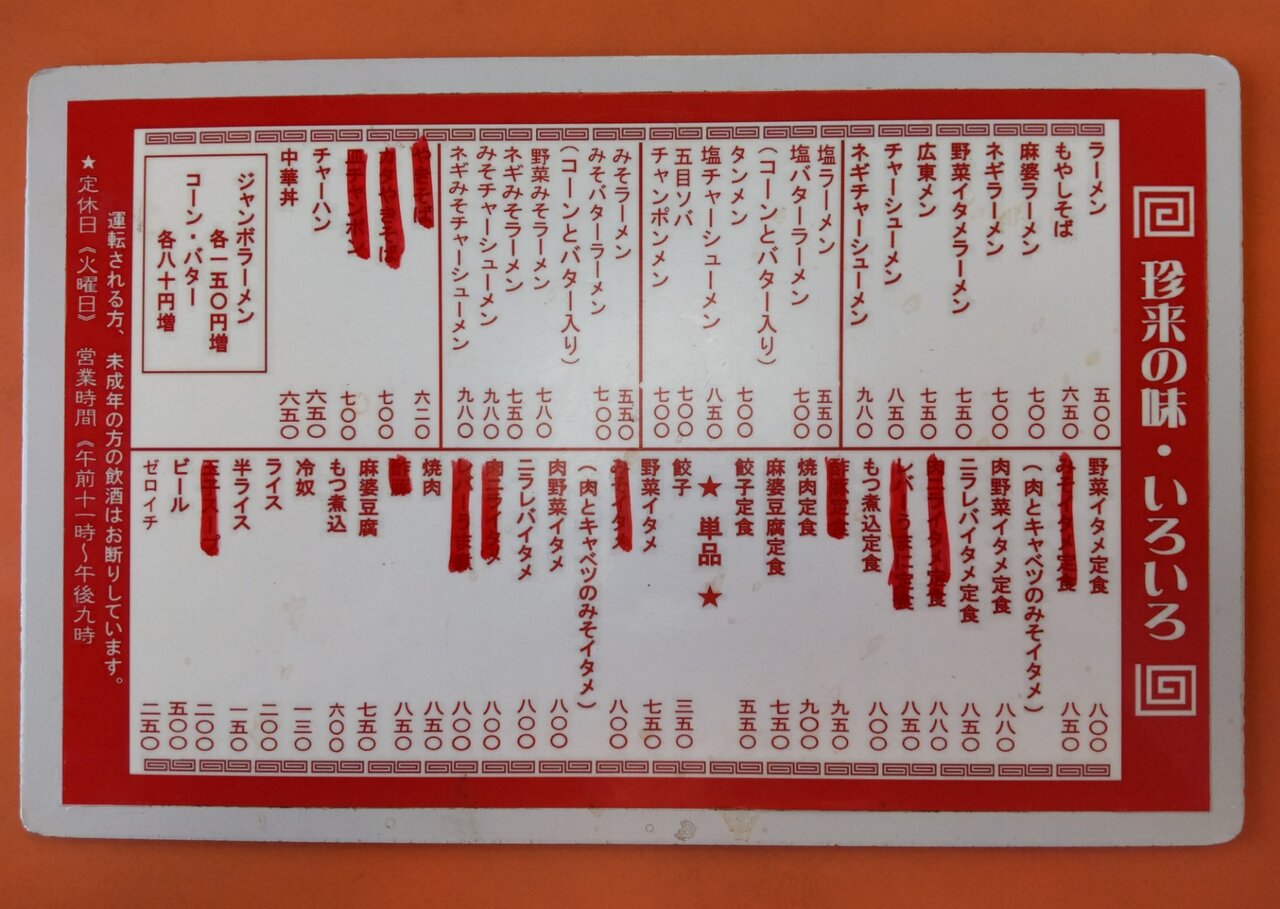 珍来の味・いろいろ
ラーメン 五〇〇
もやしそば 六五〇
麻婆ラーメン 七〇〇
ネギラーメン 七〇〇
野菜イタメラーメン 七五〇
広東メン 七五〇
チャーシューメン 八五〇
ネギチャーシューメン 九八〇
塩ラーメン 五五〇
塩バターラーメン 七〇〇
(コーンとバター入り)
タンメン 七〇〇
塩チャーシューメン 八五〇
五目ソバ 七〇〇
チャンポンメン 七〇〇
みそラーメン 五五〇
みそバターラーメン 七〇〇
(コーンとバター入り)
野菜みそラーメン 七八〇
ネギみそラーメン 七五〇
みそチャーシューメン 九八〇
ネギみそチャーシューメン 九八〇
やきそば 六二〇
カタやきそば 七〇〇
皿チャンポン 七〇〇
チャーハン 六五〇
中華丼 六五〇
ジャンボラーメン
各一五〇円増
コーン・バター
各八十円増
野菜イタメ定食 八〇〇
みそイタメ定食 八五〇
(肉とキャベツのみそイタメ)
肉野菜イタメ定食 八八〇
ニラレバイタメ定食 八五〇
肉ニライタメ定食 八八〇
レバーうまに定食 八五〇
もつ煮込定食 八〇〇
酢豚定食 九五〇
焼肉定食 九〇〇
麻婆豆腐定食 七五〇
餃子定食 五五〇
★単品★
餃子 三五〇
野菜イタメ 七五〇
みそイタメ 八〇〇
(肉とキャベツのみそイタメ)
肉野菜イタメ 八〇〇
ニラレバイタメ 八〇〇
肉ニライタメ 八〇〇
八〇〇
焼肉 八五〇
酢豚 八五〇
麻婆豆腐 七五〇
もつ煮込 六〇〇
冷奴 一三〇
ライス 二〇〇
半ライス 一五〇
玉子スープ 二〇〇
ビール 五〇〇
ゼロイチ 二五〇
運転される方、未成年の方の飲酒はお断りしています。
★定休日《火曜日》 営業時間《午前十一時〜午後九時